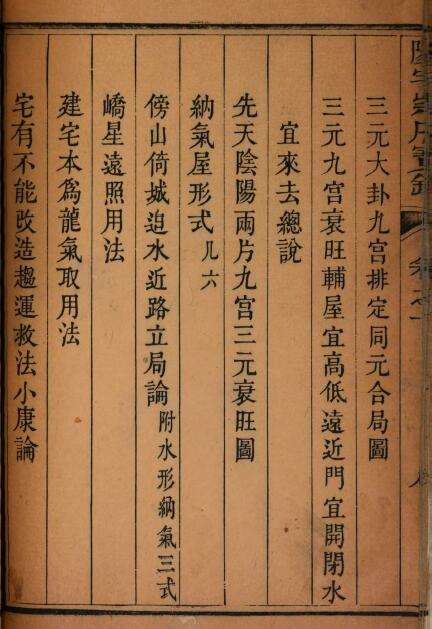 三元大卦九宫排定同元合局圖
三元九宫衰旺輔屋宜高低遠近門宜開閉水
宜來去總說
先天陰陽兩片九宫三元衰旺圖
納氣屋形式凡六
傍山倚城迫水近路立局論附水形納氣三式
嶠星遠照用法
建宅本為龍氣取用法
宅有不能改造趨運救法小康論